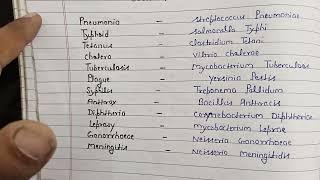 Pneumonia - streptococcus Pneumoniae
Typhoid - Salmonella Typhi
Tetanus - Clostridium Tetani
Cholera - Vibrio Cholerae
Tuberculosis - Mycobacterium Tuberculosis
Plague - Yersinia Pestis
Syphilis - Treponema Pallidum
Anthrax - Bacillus Anthracis
Diphtheria - Corynebacterium Diphtheriae
Leprosy - Mycobacterium Leprae
Gonorrhoeae - Neisseria Gonorrhoeae
Meningitis - Neisseria Meningitidis